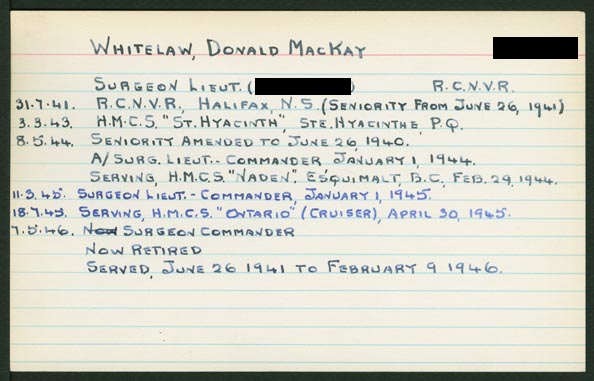 WHITELAW, DONALD MACKAY
SURGEON LIEUT. ( ) R.C.N.V.R.
31.7.41. R.C.N.V.R., HALIFAX, N.S. (SENIORITY FROM JUNE 26, 1941)
3.3.43. H.M.C.S. "ST. HYACINTH", STE. HYACINTHE, P.Q.
8.5.44. SENIORITY AMENDED TO JUNE 26, 1940.
A/SURG. LIEUT.-COMMANDER JANUARY 1, 1944.
SERVING, H.M.C.S. "NADEN", ESQUIMALT, B.C., FEB. 29, 1944.
11.3.45. SURGEON LIEUT.-COMMANDER, JANUARY 1, 1945.
18.7.45. SERVING, H.M.C.S. "ONTARIO" (CRUISER), APRIL 30, 1945.
7.5.46. NOW SURGEON COMMANDER
NOW RETIRED
SERVED, JUNE 26 1941 TO FEBRUARY 9 1946.